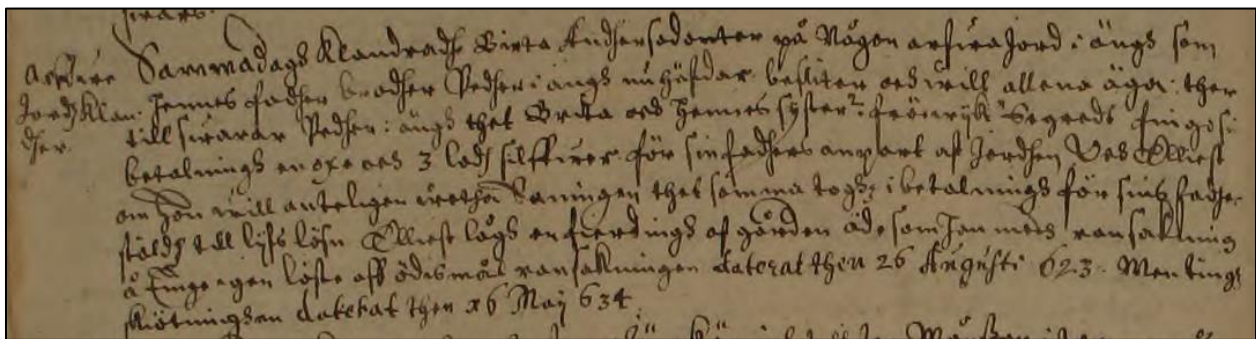 swars.
Arffwe Jordz Klan: dher.
Sammadags Klandradhe Birta Andhersedotter på Någon arfwa Jord i ängs som
hennes fadher brodher Pedher i ängs nu häfdar besitter och will allena äga: ther
till swarar Pedher i ängs thet Brita och hennes syster Segredh fingo i
betalnings en oxe och 3 lodh silffwer för sin fadhers anpart af Jordhen Och Elliest
om hon will anteligen sanningen thet samma togz i betalnings för sins fadhers
stäldh till lyfs lösn Elliest lågs en fierdings af gården öde som han medh ransakning
å Tinge igen löste aff ödismål ransakningen daterat then 26 Augusti 623. Men tings
skiötningsen daterat then 16 Maij 634.